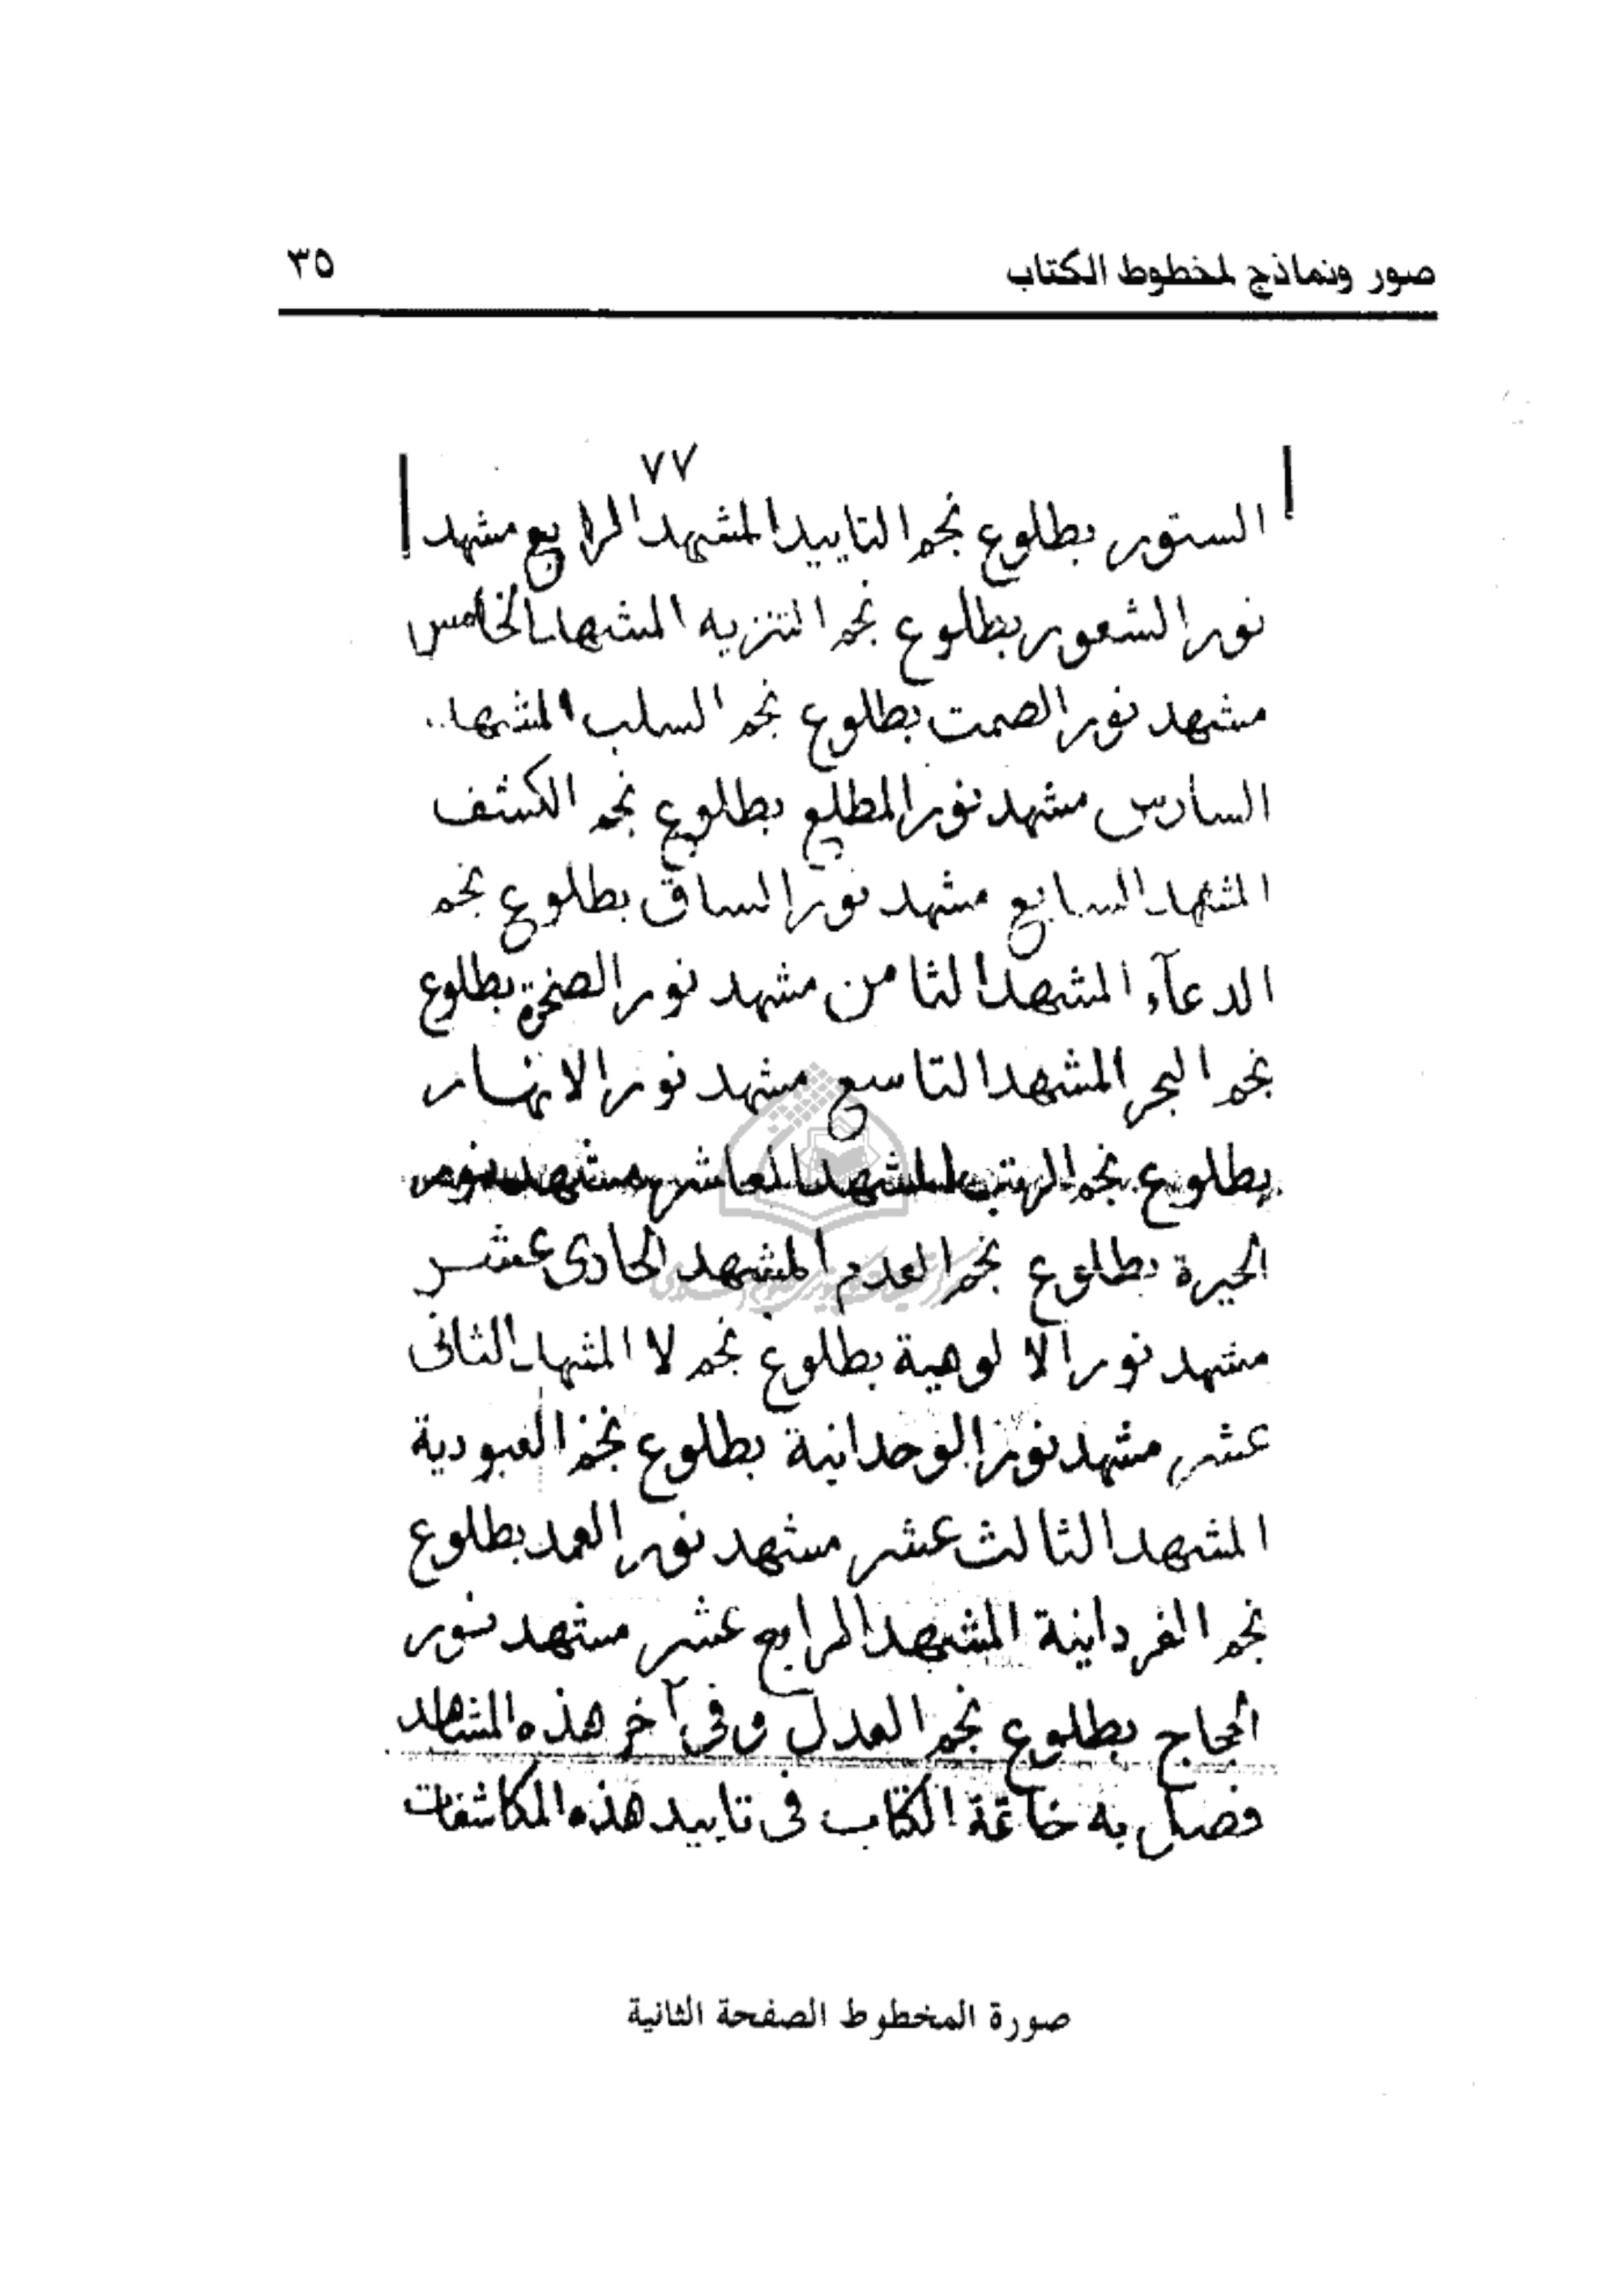 صور ونماذج لمخطوط الكتاب
٣٥
٧٧
الستور بطلوع نجم التاييد المشهد الرابع مشهد
نور الشعور بطلوع نجم التنزيه المشهد الخامس
مشهد نور الصمت بطلوع نجم السلب المشهد
السادس مشهد نور المطلع بطلوع نجم الكشف
المشهد السابع مشهد نور الساق بطلوع نجم
الدعآء المشهد الثامن مشهد نور الصخرة بطلوع
نجم البحر المشهد التاسع مشهد نور الانهار
بطلوع نجم الرتب المشهد العاشر مشهد نور
الحيرة بطلوع نجم العدم المشهد الحادى عشر
مشهد نور الالوهية بطلوع نجم لا المشهد الثانى
عشر مشهد نور الوحدانية بطلوع نجم العبودية
المشهد الثالث عشر مشهد نور العمد بطلوع
نجم الفردانية المشهد الرابع عشر مشهد نور
الحجاج بطلوع نجم العدل وفى آخر هذه المشاهد
فصل به خاتمة الكتاب فى تاييد هذه المكاشفات
صورة المخطوط الصفحة الثانية